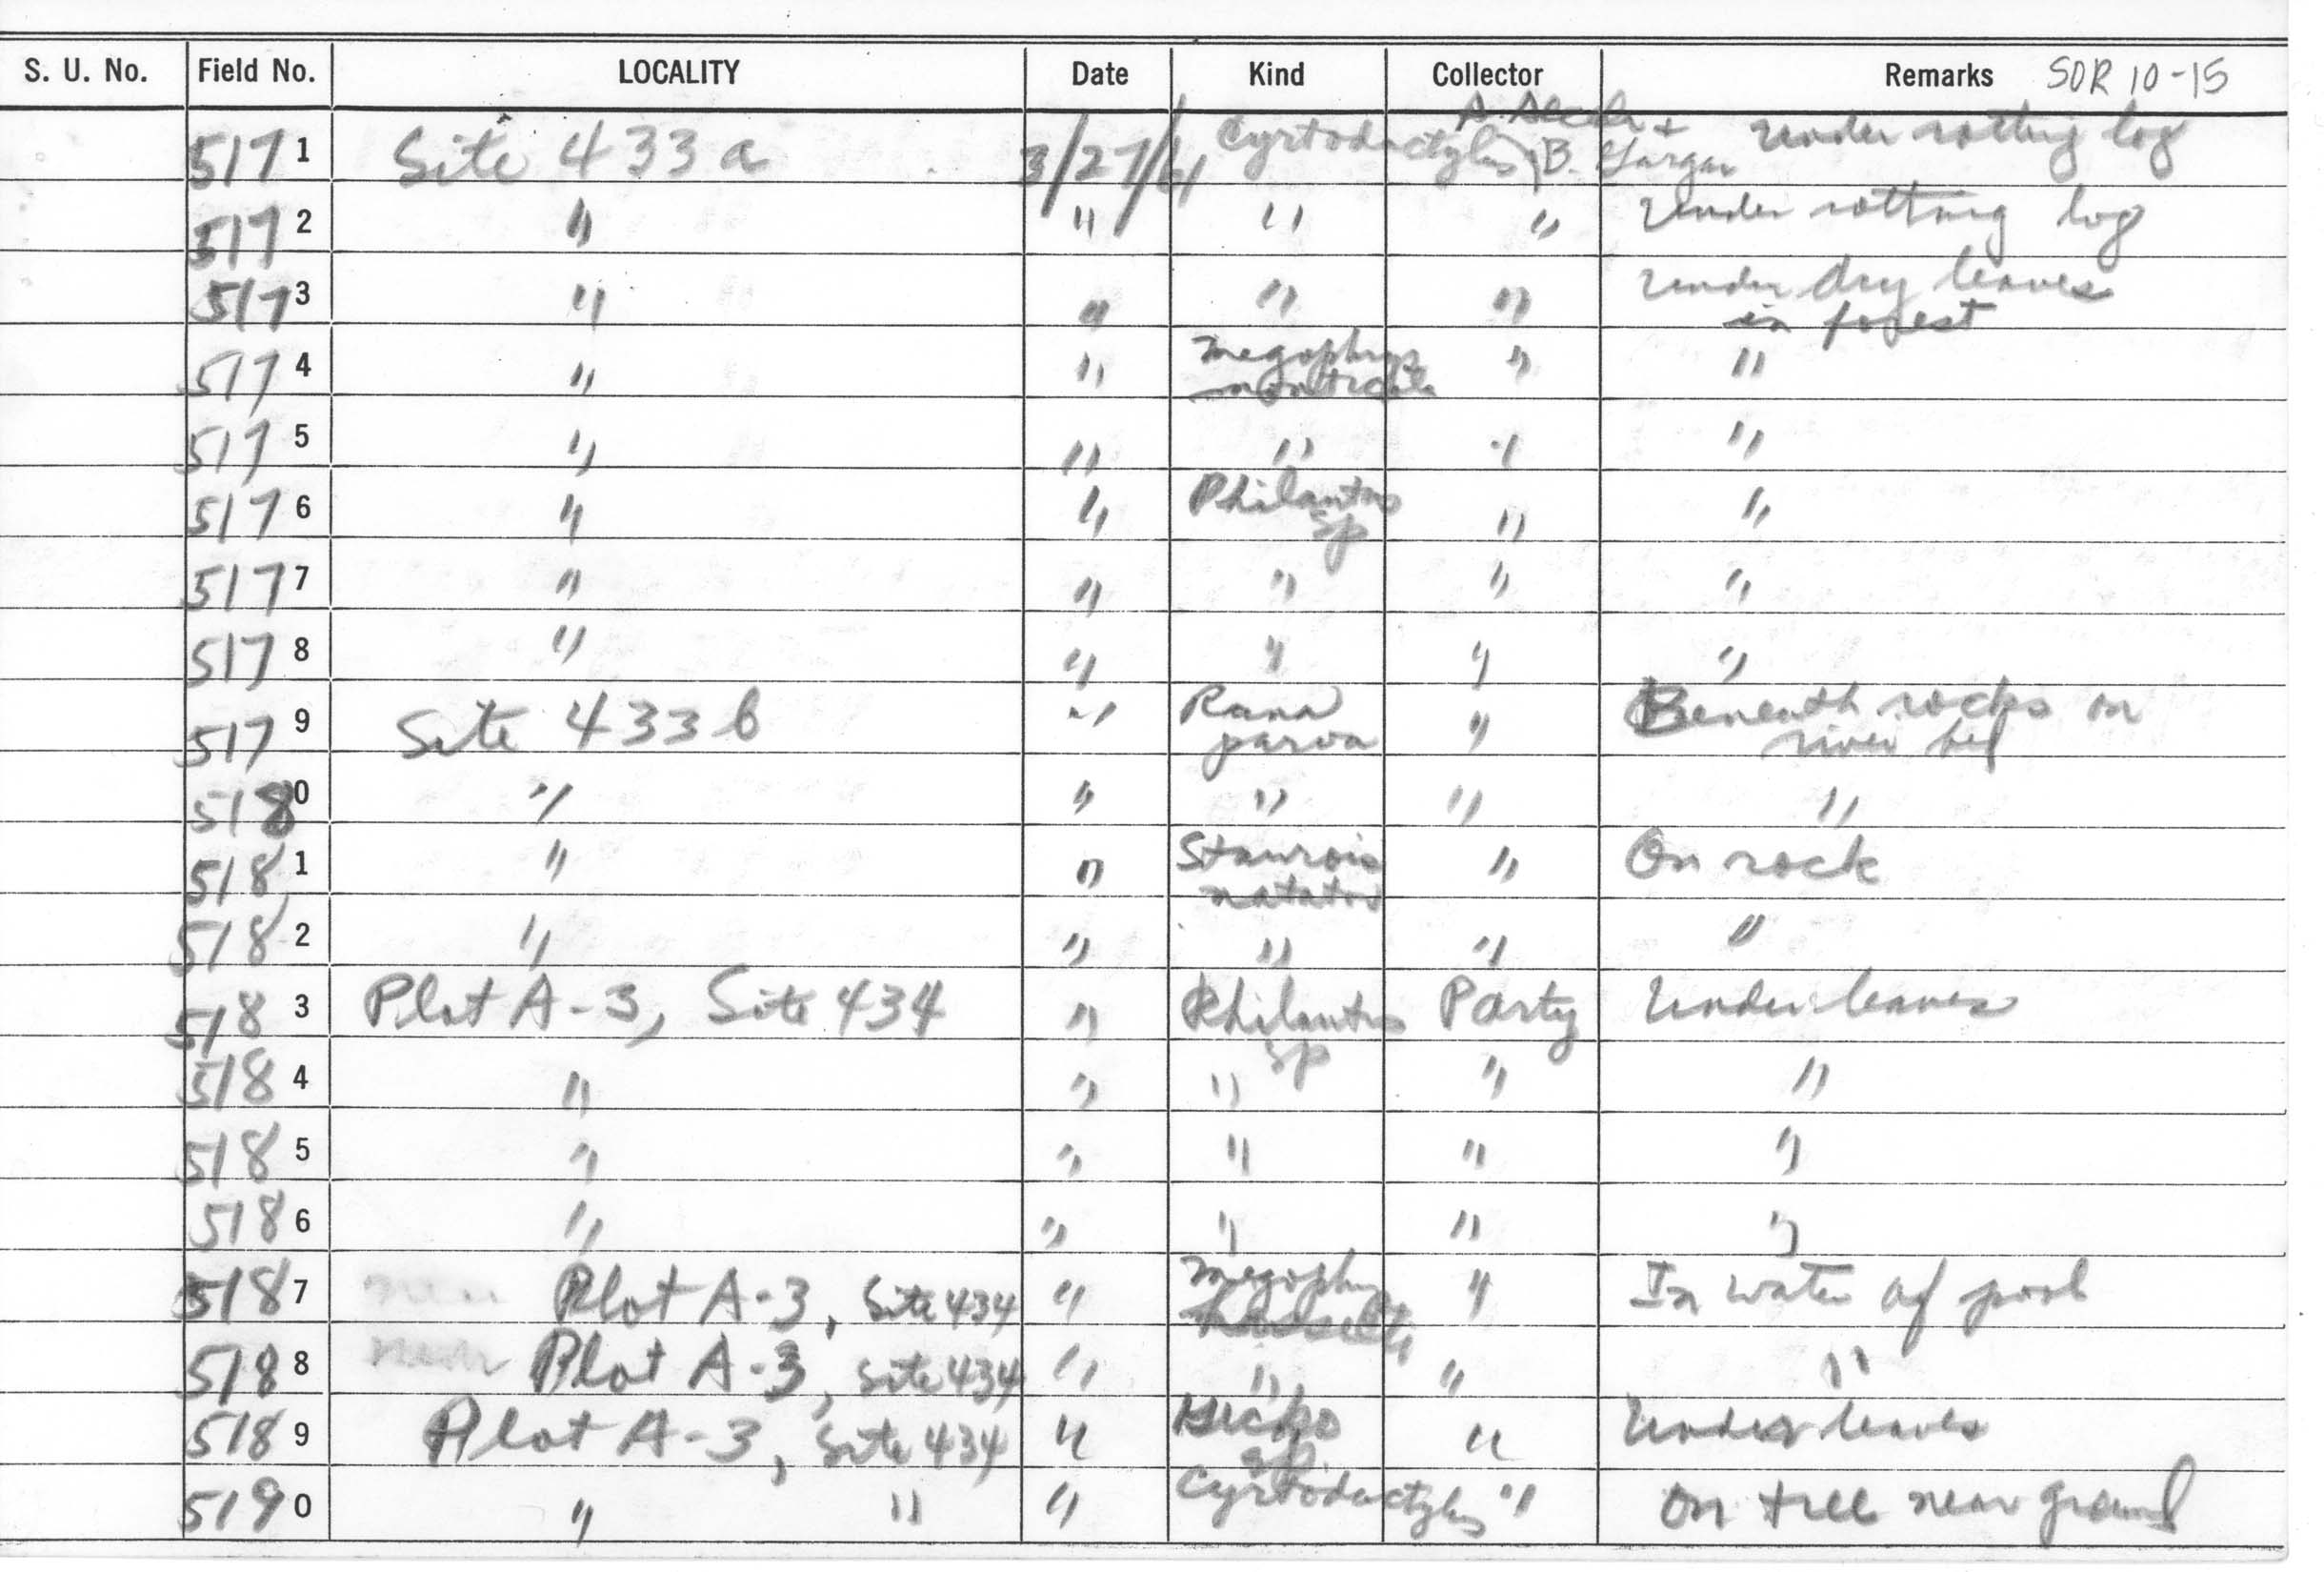 S. U. No. Field No. LOCALITY Date Kind Collector Remarks SOR 10-15
5171 Site 433a 3/27/61 Cyrtodactylus A. Alcala + B. Gargar Under rotting log
5172 " " " " Under rotting log
5173 " " " " Under dry leaves
in forest
5174 " " Megophrys " "
monticola
5175 " " " " "
5176 " " Philautus " "
sp
5177 " " " " "
5178 " " " " "
5179 Site 433b " Rana " Beneath rocks on
parva river bed
5180 " " " " "
5181 " " Staurois " On rock
natator
5182 " " " " "
5183 Plot A-3, Site 434 " Philautus Party Under leaves
sp
5184 " " " " "
5185 " " " " "
5186 " " " " "
5187 near Plot A-3, Site 434 " Megophrys " In water of pool
hasselti
5188 near Plot A-3, Site 434 " " " "
5189 Plot A-3, Site 434 " Gekko " Under leaves
sp.
5190 " " " Cyrtodactylus " On tree near ground